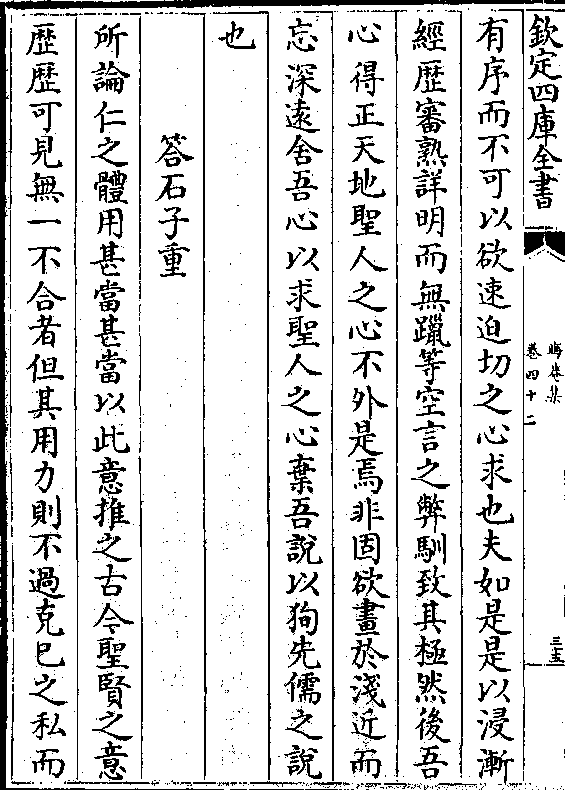 欽定四庫全書
晦菴集
卷四十二
三五
有序而不可以欲速迫切之心求也夫如是是以浸漸
經歴審熟詳明而無躐等空言之弊馴致其極然後吾
心得正天地聖人之心不外是焉非固欲畫於淺近而
忘深逺舍吾心以求聖人之心棄吾説以狥先儒之説
也
答石子重
所論仁之體用甚當甚當以此意推之古今聖賢之意
歴歴可見無一不合者但其用力則不過克已之私而